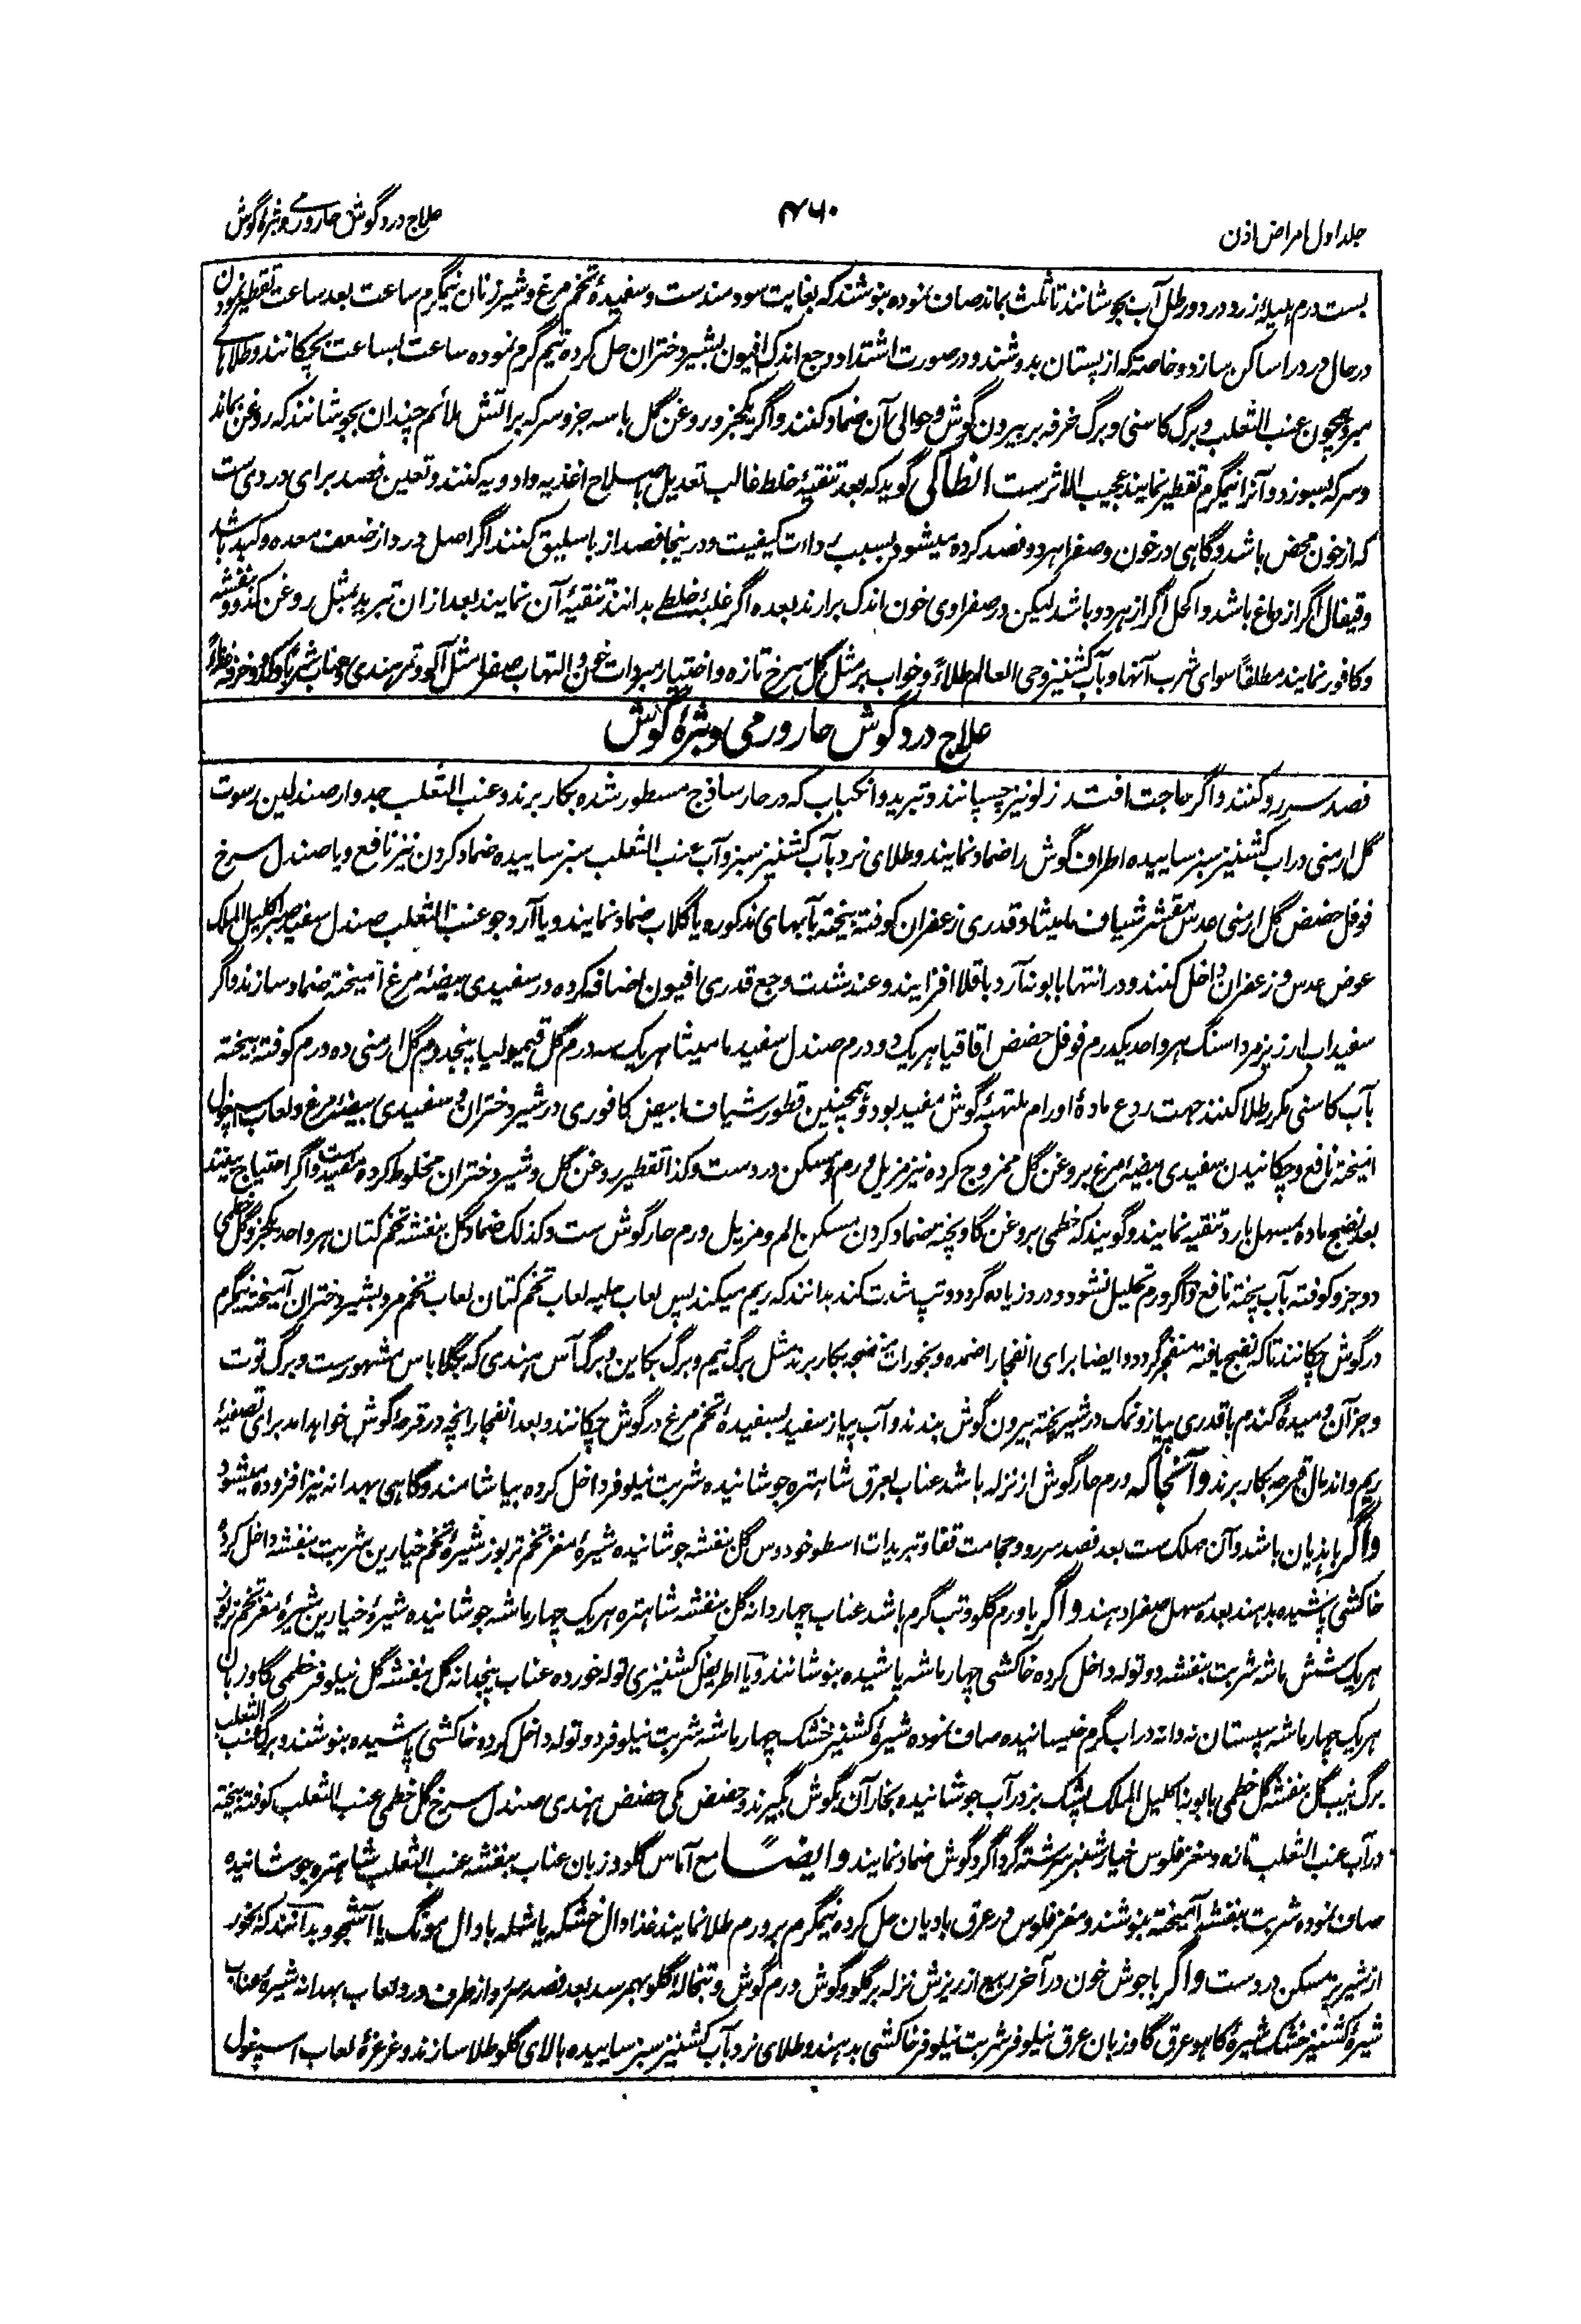 جلد اول امراض اذن
۴۶۰
علاج درد گوش حار ورمی و بثرۀ گوش
بست درم ہلیلۂ زرد در دو رطل آب بجوشانند تا ثلث بماند صاف نموده بنوشند که بغایت سودمندست و سفیدۂ تخم مرغ و شیر زنان نیمگرم ساعت بعد ساعت تقطیر نمودن
در حال درد را ساکن سازد و خاصته که از پستان بدوشند و در صورت اشتداد وجع اندک افیون بشیر دختران حل کرده نیم گرم نموده ساعت بساعت بچکانند و طلاهای
سرد همچون عنب الثعلب و برگ کاسنی و برگ خرفه بر بیرون گوش و حوالی آن ضماد کنند و اگر یکجزو روغن گل با سه جزو سرکه بر آتش ملائم چندان بجوشانند که روغن بماند
و سرکه بسوزد و آنرا نیمگرم تقطیر نمایند عجیب الاثرست انطاکی گوید که بعد تنقیۂ خلط غالب تعدیل باصلاح اغذیه و ادویه کنند و تعین فصد برای دردی ست
که از خون محض باشد و گاہی در خون و صفرا ہر دو فصد کرده میشود بسبب رداءت کیفیت و درینجا فصد از باسلیق کنند اگر اصل درد از ضعف معده و کبد باشد
و قیفال اگر از دماغ باشد و اکحل اگر از ہر دو باشد لیکن در صفراوی خون اندک برارند بعده اگر غلبۂ خلط بدانند تنقیۂ آن نمایند بعد ازان تبرید بمثل روغن کدو و بنفشه
و کافور نمایند مطلقاً سوای شرب آنها و بآب کشنیز و حی العالم طلاءً و خواب بر مثل گل سرخ تازه و اختیار مبردات خون و التهاب صفرا مثل آلو و تمر ہندی و عناب شرباً و کدو و خرفه طلاءً
علاج درد گوش حار ورمی و بثرۀ گوش
فصد سررو کنند و اگر حاجت افتد زلو نیز چسپانند و تبرید و انکباب که در حار ساذج مسطور شده بکار برند و عنب الثعلب جدوار صندلین رسوت
گل ارمنی در آب کشنیز سبز ساییده اطراف گوش را ضماد نمایند و طلای نرد بآب کشنیز سبز و آب عنب الثعلب سبز ساییده ضماد کردن نیز نافع و یا صندل سرخ
فوفل حضض گل ارمنی عدس مقشر شیاف مامیثا و قدری زعفران کوفته بیخته بآبهای مذکوره یا گلاب ضماد نمایند و یا آرد جو عنب الثعلب صندل سفید صبر اکلیل الملک
عوض عدس و زعفران داخل کنند و در انتها بابونه آرد باقلا افزایند و عند شدت وجع قدری افیون اضافه کرده در سفیدی بیضۂ مرغ آمیخته ضماد سازند و اگر
سفیداب ارزیز مرداسنگ ہر واحد یکدرم فوفل حضض اقاقیا ہریک دو درم صندل سفید مامیثا ہریک سه درم گل قیمولیا پنجدرم گل ارمنی ده درم کوفته بیخته
بآب کاسنی مکرر طلا کنند جہت ردع مادۂ اورام ملتهبۂ گوش مفید بود و همچنین قطور شیاف ابیض کافوری در شیر دختران و سفیدی بیضۂ مرغ و لعاب اسپغول
آمیخته نافع و چکانیدن سفیدی بیضۂ مرغ بروغن گل ممزوج کرده نیز مزیل ورم و مسکن دردست و کذا تقطیر روغن گل و شیر دختران مخلوط کرده مفیدست و اگر احتیاج بینند
بعد نضج ماده بمسہل بارد تنقیه نمایند و گویند که خطمی بروغن گاو پخته ضماد کردن مسکن الم و مزیل ورم حار گوش ست و کذلک ضماد گل بنفشه تخم کتان ہر واحد یکجزو گل خطمی
دو جزو کوفته بآب پخته نافع و اگر ورم تحلیل نشود و درد زیاده گردد و تپ شدت کند بدانند که ریم میکند پس لعاب حلبه لعاب تخم کتان لعاب تخم مرو بشیر دختران آمیخته نیمگرم
در گوش چکانند تا که نضج یافته منفجر گردد و ایضا برای انفجار اضمده و بخورات منضجه بکار برند مثل برگ نیم و برگ بکاین و برگ آس ہندی که بگلاباس مشہورست و برگ توت
و جز آن و میدۂ گندم با قدری پیاز و نمک در شیر پخته بیرون گوش بندند و آب پیاز سفید بسفیدۂ تخم مرغ در گوش چکانند و بعد انفجار آنچه در قرحۂ گوش خواہد آمد برای تصفیۂ
ریم و اندمال قرحه بکار برند و آنجا که ورم حار گوش از نزله باشد عناب بعرق شاہتره جوشانیده شربت نیلوفر داخل کرده بیاشامند و گاہی بہدانه نیز افزوده میشود
و اگر با ہذیان باشد و آن مہلک ست بعد فصد سررو و حجامت قفا و تبریدات اسطوخودوس گل بنفشه جوشانیده شیرۂ مغز تخم تربوز شیرۂ تخم خیارین شربت بنفشه داخل کرده
خاکشی پاشیده بدہند بعده مسہل صفرا دہند و اگر با ورم گلو و تب گرم باشد عناب چہار دانه گل بنفشه شاہتره ہریک چہار ماشه جوشانیده شیرۂ خیارین شیرۂ مغز تخم تربوز
ہریک شش ماشه شربت بنفشه دو توله داخل کرده خاکشی چہار ماشه پاشیده بنوشانند و یا اطریفل کشنیزی توله خورده عناب پنجدانه گل بنفشه گل نیلوفر خطمی گاوزبان
ہریک چہار ماشه سپستان نه دانه در آب گرم خیسانیده صاف نموده شیرۂ کشنیز خشک چہار ماشه شربت نیلوفر دو توله داخل کرده خاکشی پاشیده بنوشند و برگ عنب الثعلب
برگ نیب گل بنفشه گل خطمی بابونه اکلیل الملک پشک بز در آب جوشانیده بخار آن بگوش بگیرند و حضض مکی حضض ہندی صندل سرخ گل خطمی عنب الثعلب کوفته بیخته
در آب عنب الثعلب تازه و مغز فلوس خیارشنبر سرشته گرداگرد گوش ضماد نمایند و ایضاً مع آماس گلو و زبان عناب بنفشه عنب الثعلب شاہتره جوشانیده
صاف نموده شربت بنفشه آمیخته بنوشند و مغز فلوس در عرق بادیان حل کرده نیمگرم بر ورم طلا نمایند غذا دال خشکه یا شله یا دال مونگ یا آشجو و بدانند که بخور
از شیر بز مسکن دردست و اگر با جوش خون در آخر ربیع از ریزش نزله بر گلو و گوش ورم گوش و تبخالۂ گلو بہم رسد بعد فصد سررو از طرف درد لعاب بہدانه شیرۂ عناب
شیرۂ کشنیز خشک شیرۂ کاہو عرق گاوزبان عرق نیلوفر شربت نیلوفر خاکشی بدہند و طلای نرد بآب کشنیز سبز ساییده بالای گلو طلا سازند و غرغرۂ لعاب اسپغول